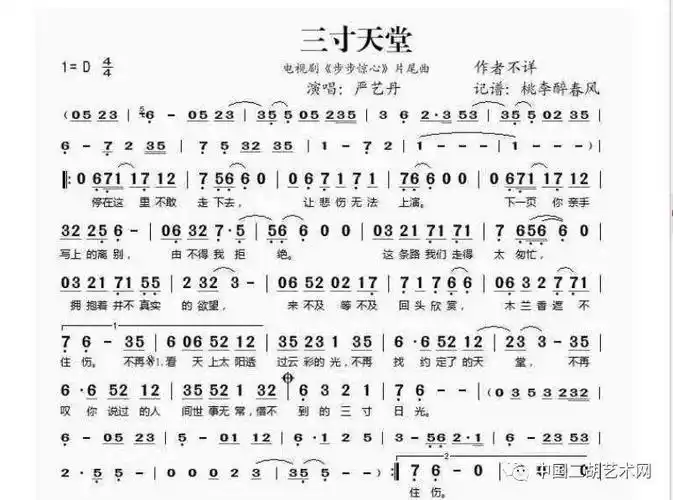 三寸天堂
1=D 4/4 电视剧《步步惊心》片尾曲 作者不详
演唱：严艺丹 记谱：桃李醉春风
(05 23 | 56 - 05 23 | 35 5 05 235 | 3 6 2·3 53 | 35 5 02 35 |
6 - 7 2 35 | 7 5 32 35 | 1 - 7 2 | 1 - - - | 1 - - -) |
‖: 0 671 17 12 | 7 566 0 | 0 671 17 1 | 766 0 0 | 0 671 17 12 |
停在这 里不敢 走下去， 让悲伤无法 上演。 下一页 你亲手
32 25 6 - | 06 32 7·5 | 56 6 0 0 | 03 21 71 71 | 7 656 6 0 |
写上的离别， 由不得我拒 绝。 这条路我们走得 太 匆忙，
03 21 71 55 | 2 32 3 - | 06 52 02 17 | 7 1 7 66 | 3 671 17 12 |
拥抱着并不真实 的欲望， 来不及 等不及 回头欣赏， 木兰香遮不
1
7 6 - 35 | 6 06 52 12 | 35 23 1 35 | 6 06 52 12 | 23 3 - 35 |
住 伤。 不再 1.看 天上太阳透 过云彩的光，不再 找 约定了的天 堂， 不再
6 06 52 12 | 35 52 1 32 | 6 3 2 1 | 7 6 - - | (0 3 53 232 |
叹 你 说过的人 间世事无常，借不 到的三寸 日光。
6 - 06 23 | 05 - 05 12 | 2 · 01 03 | 6 · 1 2 5 | 3 - 56 2 5 |
2
2 - 5 5 | 0 0 0 0) :‖ 7 6 - 0 | 0 0 0 0 |
住 伤。
中国二胡艺术网